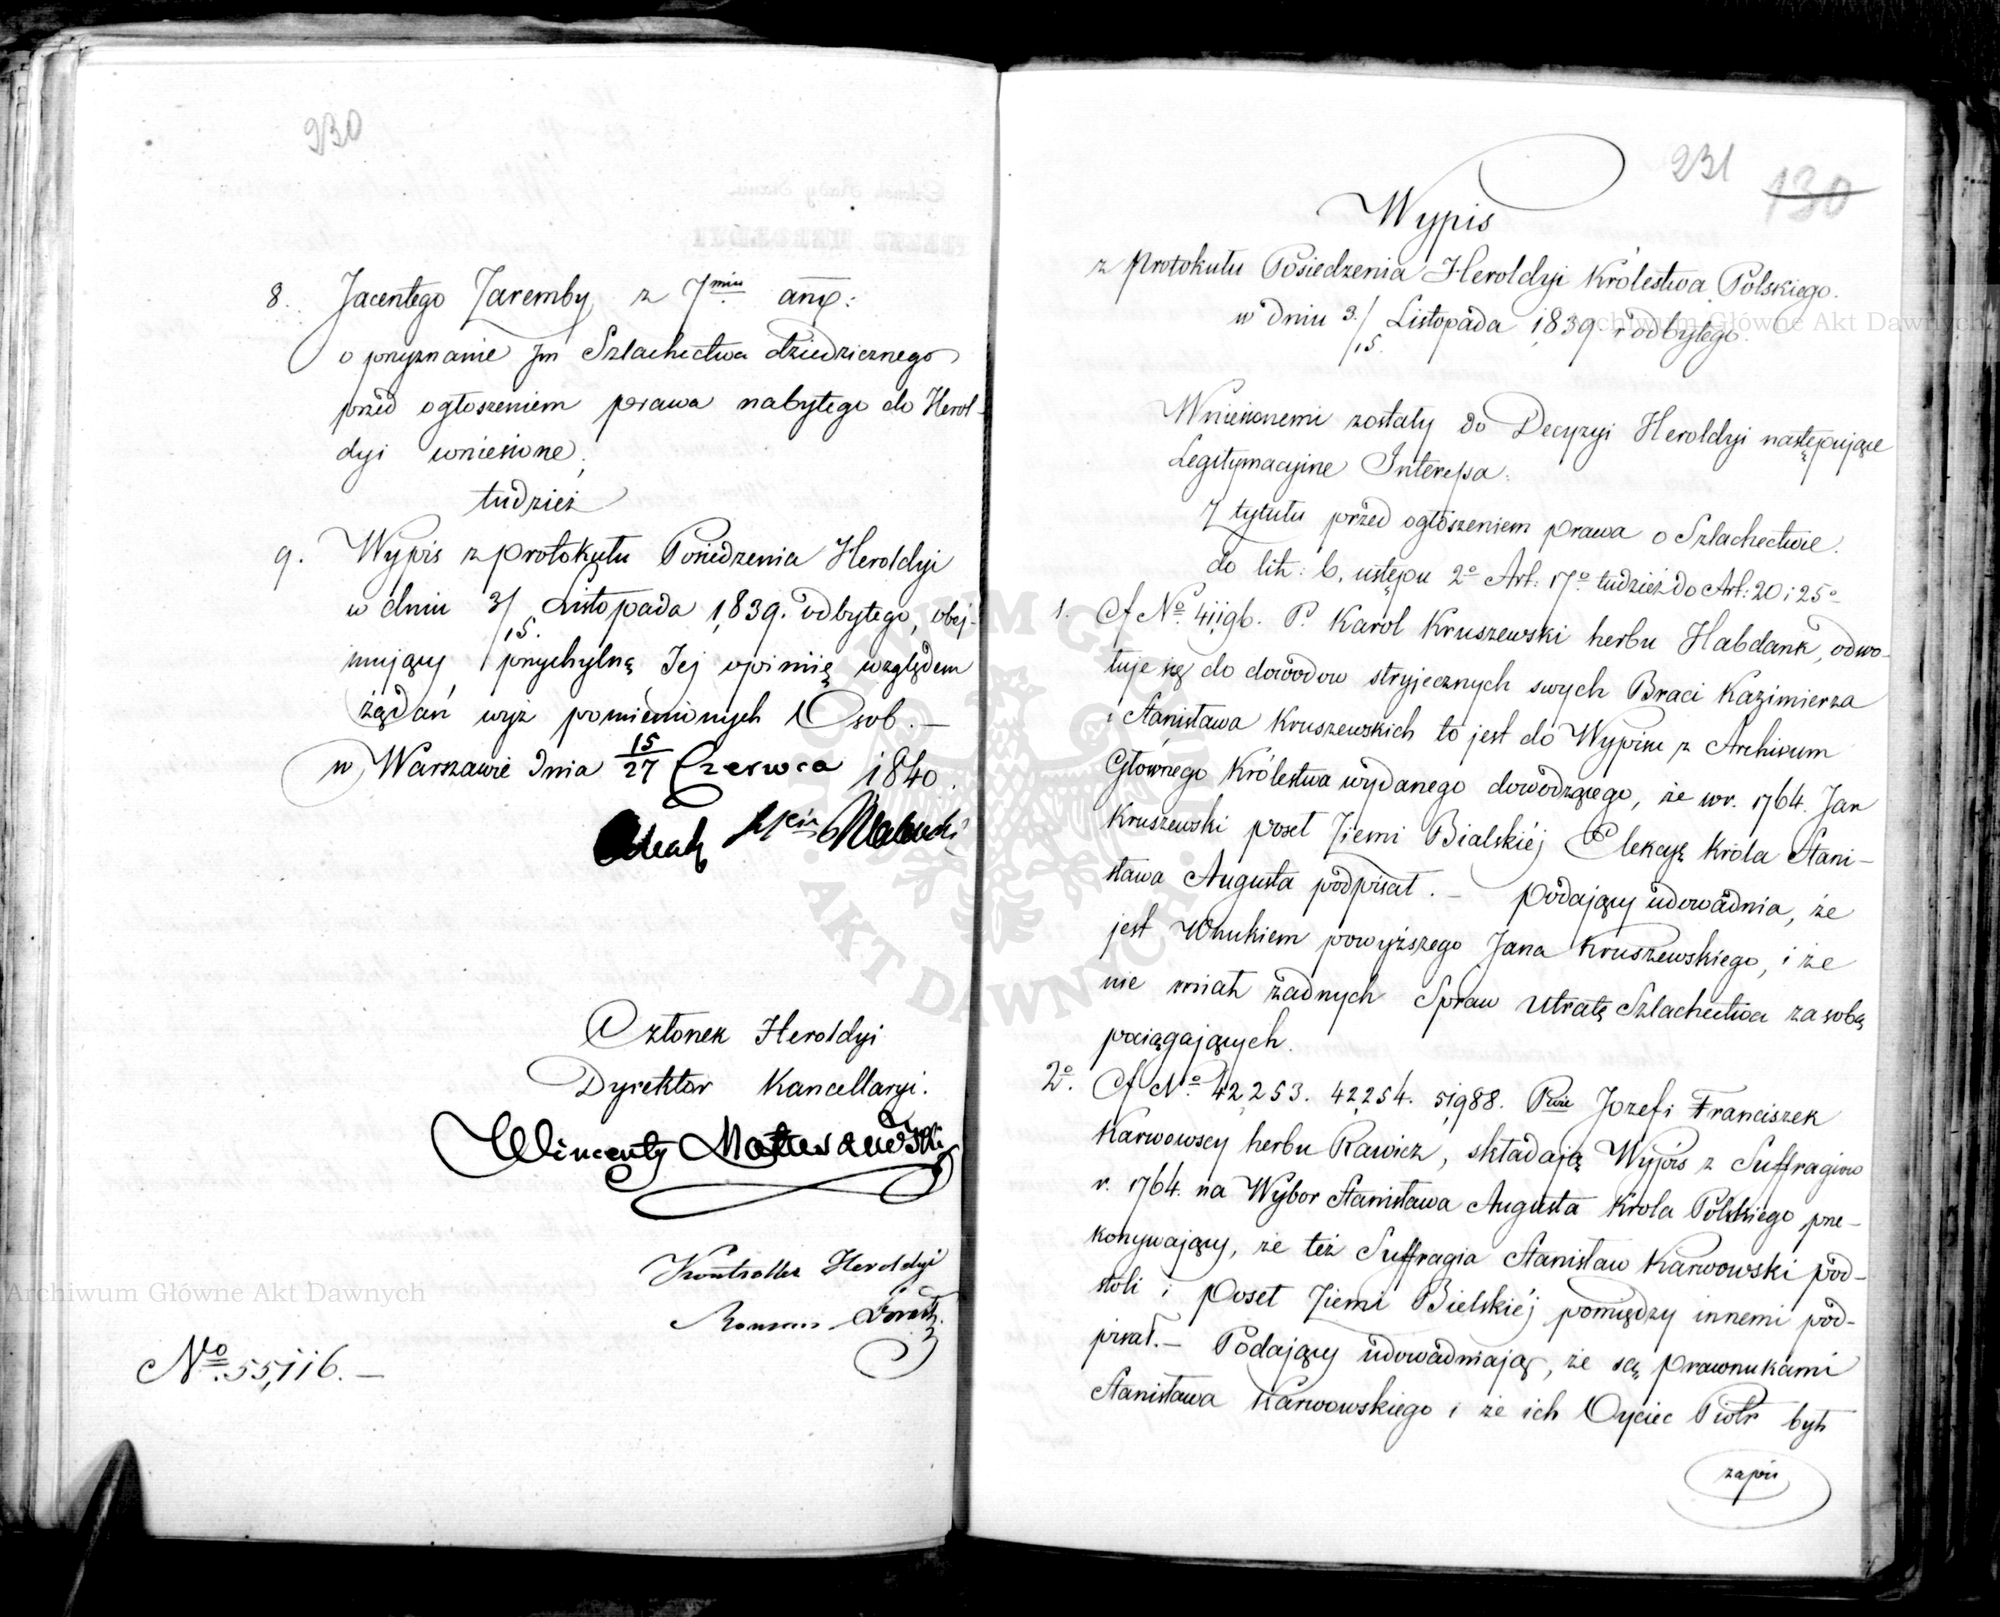 230
8. Jacentego Zaremby z 7miu anx:
o przyznanie Jm Szlachectwa dziedzicznego
przed ogłoszeniem prawa nabytego do Herol-
dyi wniesione,
tudzież
9. Wypis z protokułu Posiedzenia Heroldyi
w dniu 3/15. Listopada 1839. odbytego, obej-
mujący przychylną Jej opinię względem
żądań wyż pomienionych Osob. —
w Warszawie dnia 15/27 Czerwca 1840.
Członek Heroldyi
Dyrektor Kancellaryi.
Wincenty Matuszewski
Kontroller Heroldyi
No. 55,116. —
231 130
Wypis
z protokułu Posiedzenia Heroldyi Królestwa Polskiego.
w dniu 3./15. Listopada 1839 r odbytego.
Wniesionemi zostały do Decyzyi Heroldyi następujące
Legitymacyjne Interessa:
Z tytułu przed ogłoszeniem prawa o Szlachectwie.
do lit: b. ustępu 2o Art: 17o tudzież do Art: 20 i 25o
1. A No 41196. P. Karol Kruszewski herbu Habdank, odwo-
łuje się do dowodow stryjecznych swych Braci Kazimierza
i Stanisława Kruszewskich to jest do Wypisu z Archivum
Głównego Królestwa wydanego dowodzącego, że w r. 1764. Jan
Kruszewski poseł Ziemi Bialskiéj Elekcyę Króla Stani-
sława Augusta podpisał. — Podający udowadnia, że
jest Wnukiem powyższego Jana Kruszewskiego, i że
nie miał żadnych Spraw utratę Szlachectwa za sobą
pociągających.
2o. A No 42,253. 42,254. 51,988. Pwie Jozef i Franciszek
Karwowscy herbu Rawicz, składają Wypis z Suffragiow
r. 1764. na Wybor Stanisława Augusta Krola Polskiego prze-
konywający, że też Suffragia Stanisław Karwowski pod-
stoli i poseł Ziemi Bielskiéj pomiędzy innemi pod-
pisał. — Podający udowadniają, że są prawnukami
Stanisława Karwowskiego i że ich Oyciec Piotr był
zapis
Archiwum Główne Akt Dawnych
Archiwum Główne Akt Dawnych
ARCHIWUM GŁÓWNE
AKT DAWNYCH